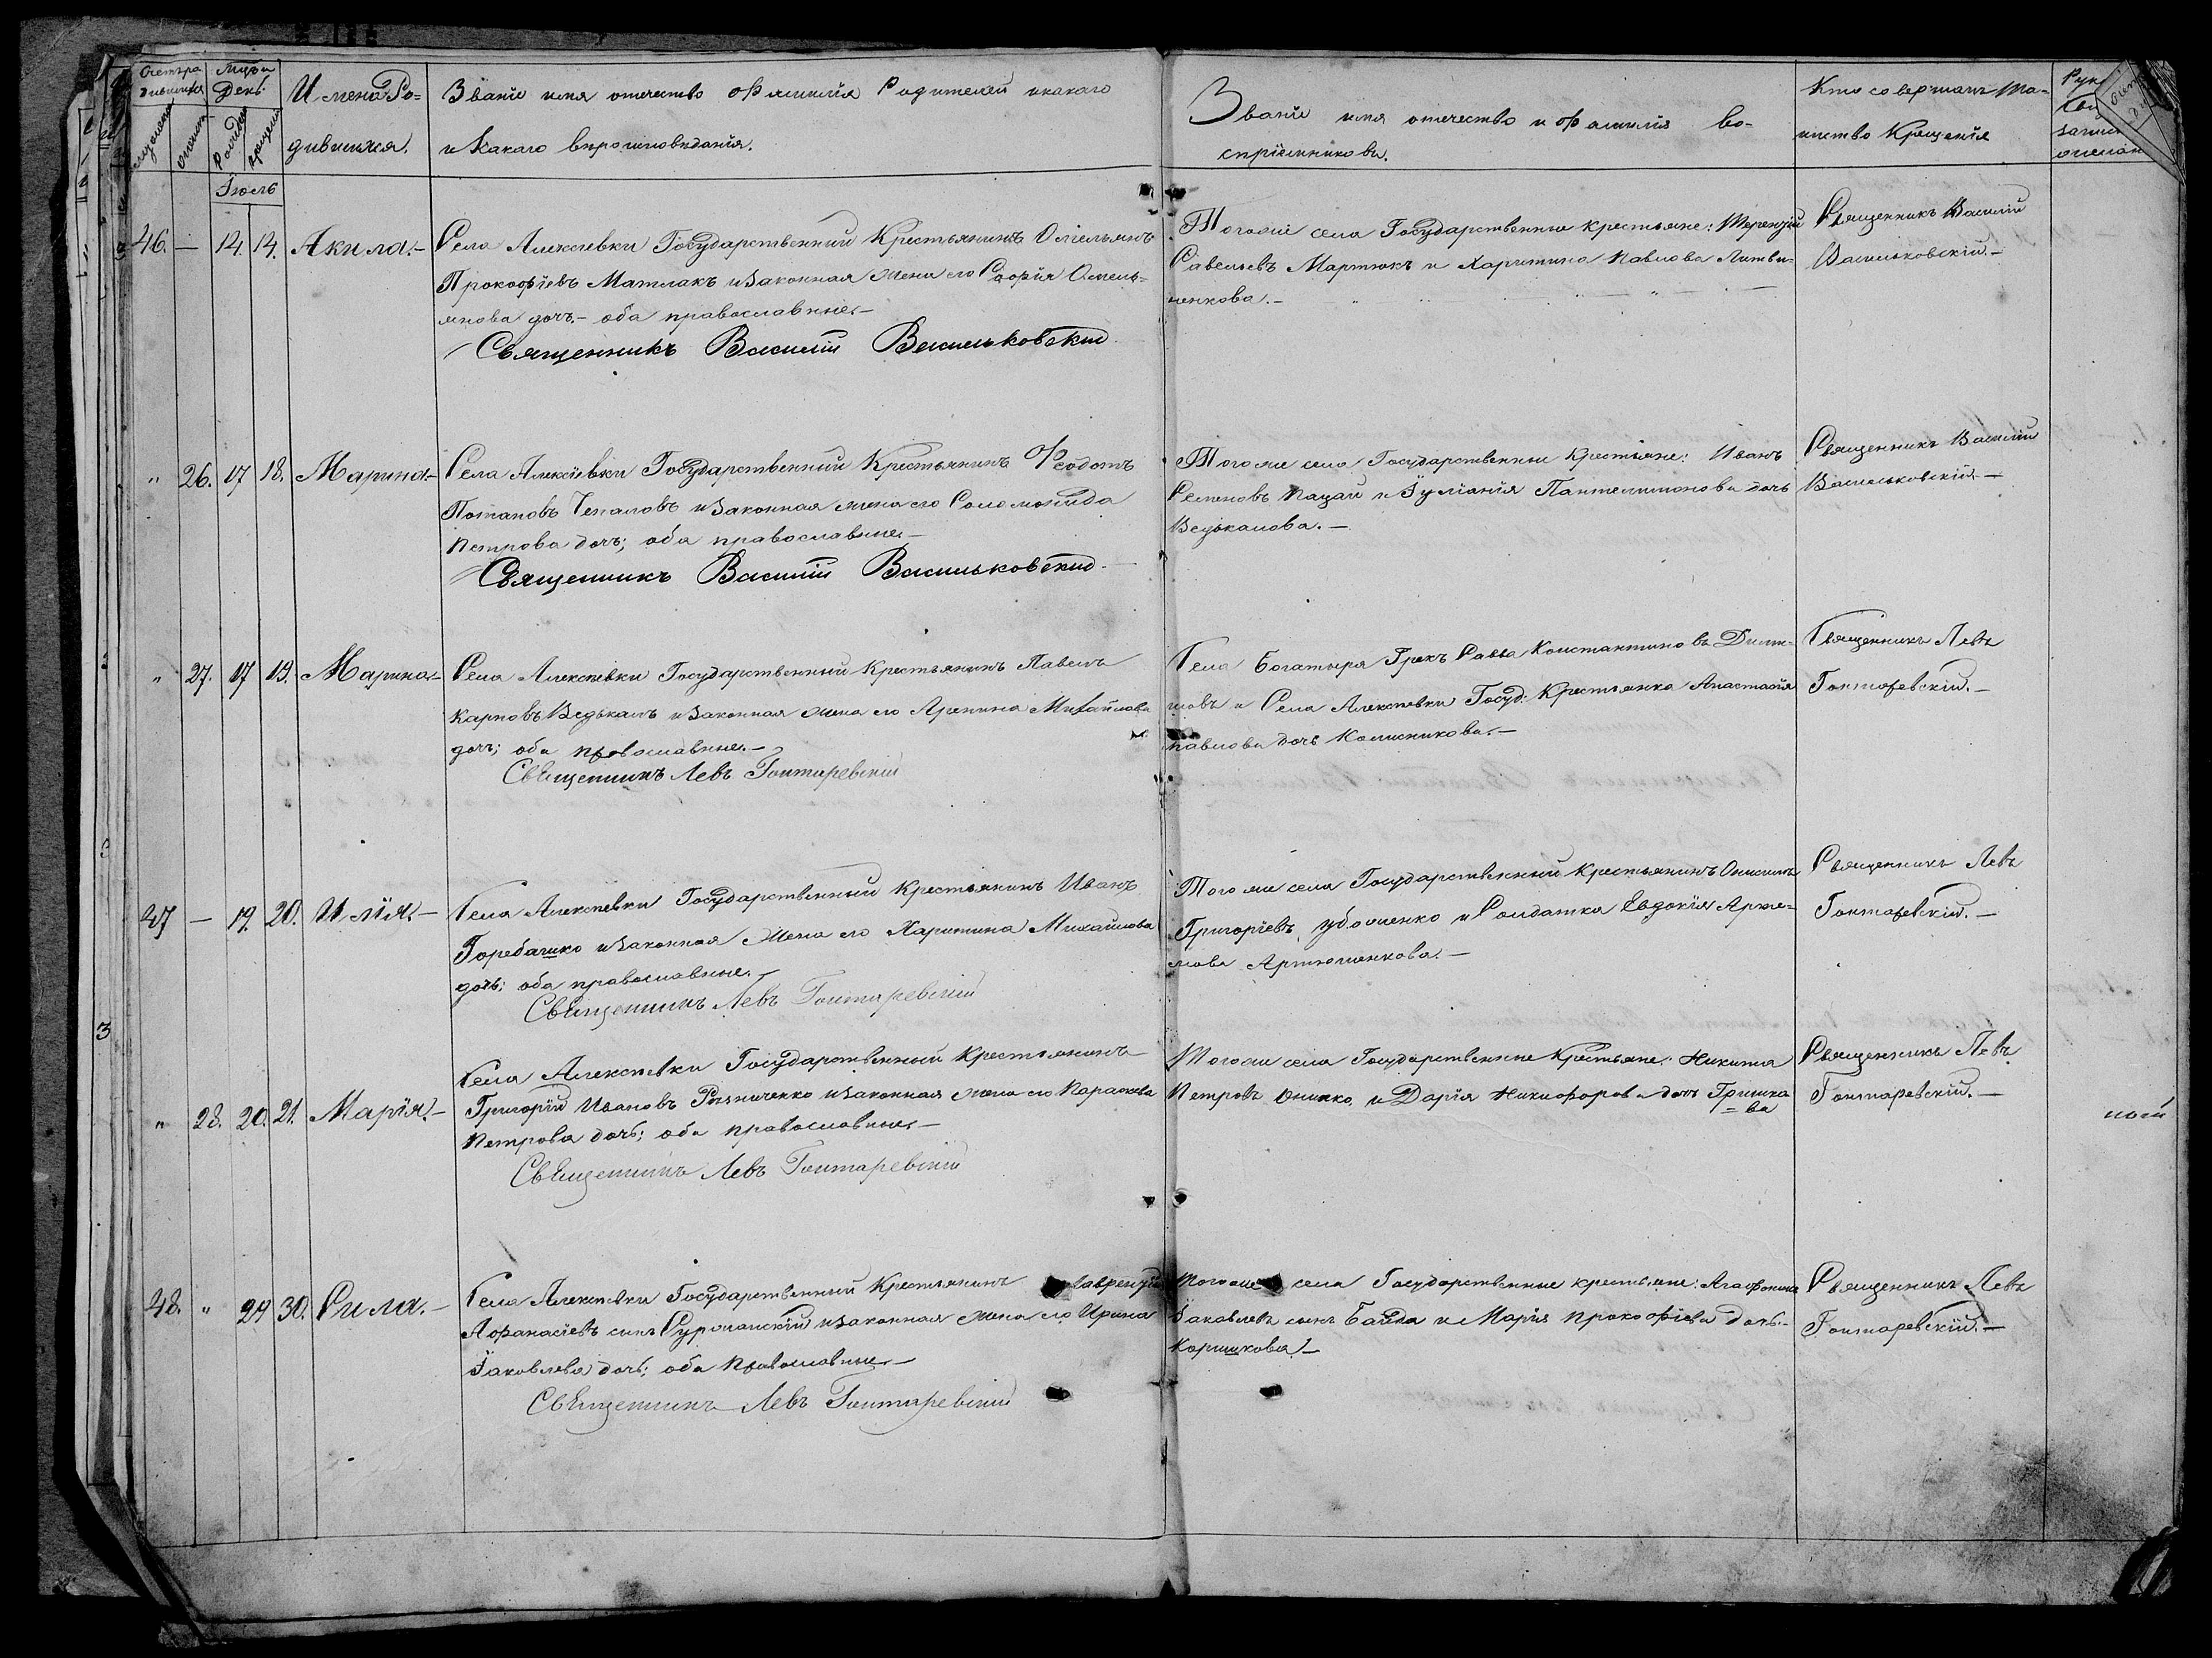 Счетъ ро-
дившихся
Мцъ и
День
Имена Ро-
дившихся.
Званіе имя отчество фамилія Родителей и какаго
и Какаго вѣроисповѣданія.
Званіе имя отчество и фамилія во-
спріемниковъ.
Кто совершалъ та-
инство Крещенія
Іюль
46. — 14. 14. Акила. —
Села Алексѣевки Государственный Крестьянинъ Омельянъ
Прокофіевъ Матлакъ и Законная жена его Софія Омель-
янова дочь. — оба православные. —
Священникъ Василій Васильковский
Тогоже села Государственные крестьяне: Терентій
Савельевъ Мартюкъ и Харитина Павлова Литви-
ненкова. —
Священникъ Василій
Васильковскій. —
" 26. 17 18. Марина. —
Села Алексѣевки Государственный Крестьянинъ Феодотъ
Потаповъ Чепаловъ и Законная жена его Соломонида
Петрова дочь; оба православные. —
Священникъ Василій Васильковский
Тогоже села Государственные Крестьяне: Иванъ
Семеновъ Пацай и Іуліанія Пантелимонова дочь
Ведькалова. —
Священникъ Василій
Васильковскій. —
" 27. 17 19. Марина. —
Села Алексѣевки Государственный Крестьянинъ Павелъ
Карповъ Ведькалъ и Законная жена его Ирина Михайлова
дочь; оба православные. —
Священникъ Левъ Гонтаревскій
Села Богатыря Грекъ Савва Константиновъ
и Села Алексѣевки Госуд: Крестьянка Анастасія
Павлова дочь Колисникова. —
Священникъ Левъ
Гонтаревскій. —
47 — 19. 20. Илія. —
Села Алексѣевки Государственный Крестьянинъ Иванъ
Горебашко и Законная жена его Харитина Михайлова
дочь; оба православные.
Священникъ Левъ Гонтаревскій
Тогоже села Государственный Крестьянинъ Онисимъ
Григоріевъ Убоженко и Солдатка Евдокія Арте-
мова Артюшенкова. —
Священникъ Левъ
Гонтаревскій. —
" 28. 20. 21. Марія. —
Села Алексѣевки Государственный Крестьянинъ
Григорій Ивановъ Резниченко и законная жена его Параскева
Петрова дочь; оба православные. —
Священникъ Левъ Гонтаревскій
Тогоже села Государственные Крестьяне: Никита
Петровъ Онипко и Дарія Никифорова дочь Гришка
= ва
Священникъ Левъ
Гонтаревскій. —
48. " 29 30. Сила. —
Села Алексѣевки Государственный Крестьянинъ Лаврентій
Афанасіевъ сынъ Сурманскій и законная жена его Ирина
Іаковлева дочь; оба православные. —
Священникъ Левъ Гонтаревскій
Тогоже села Государственные крестьяне: Агафоникъ
Іаковлевъ сынъ Байда и Марія Прокофіева дочь. —
Коршикова. —
Священникъ Левъ
Гонтаревскій. —